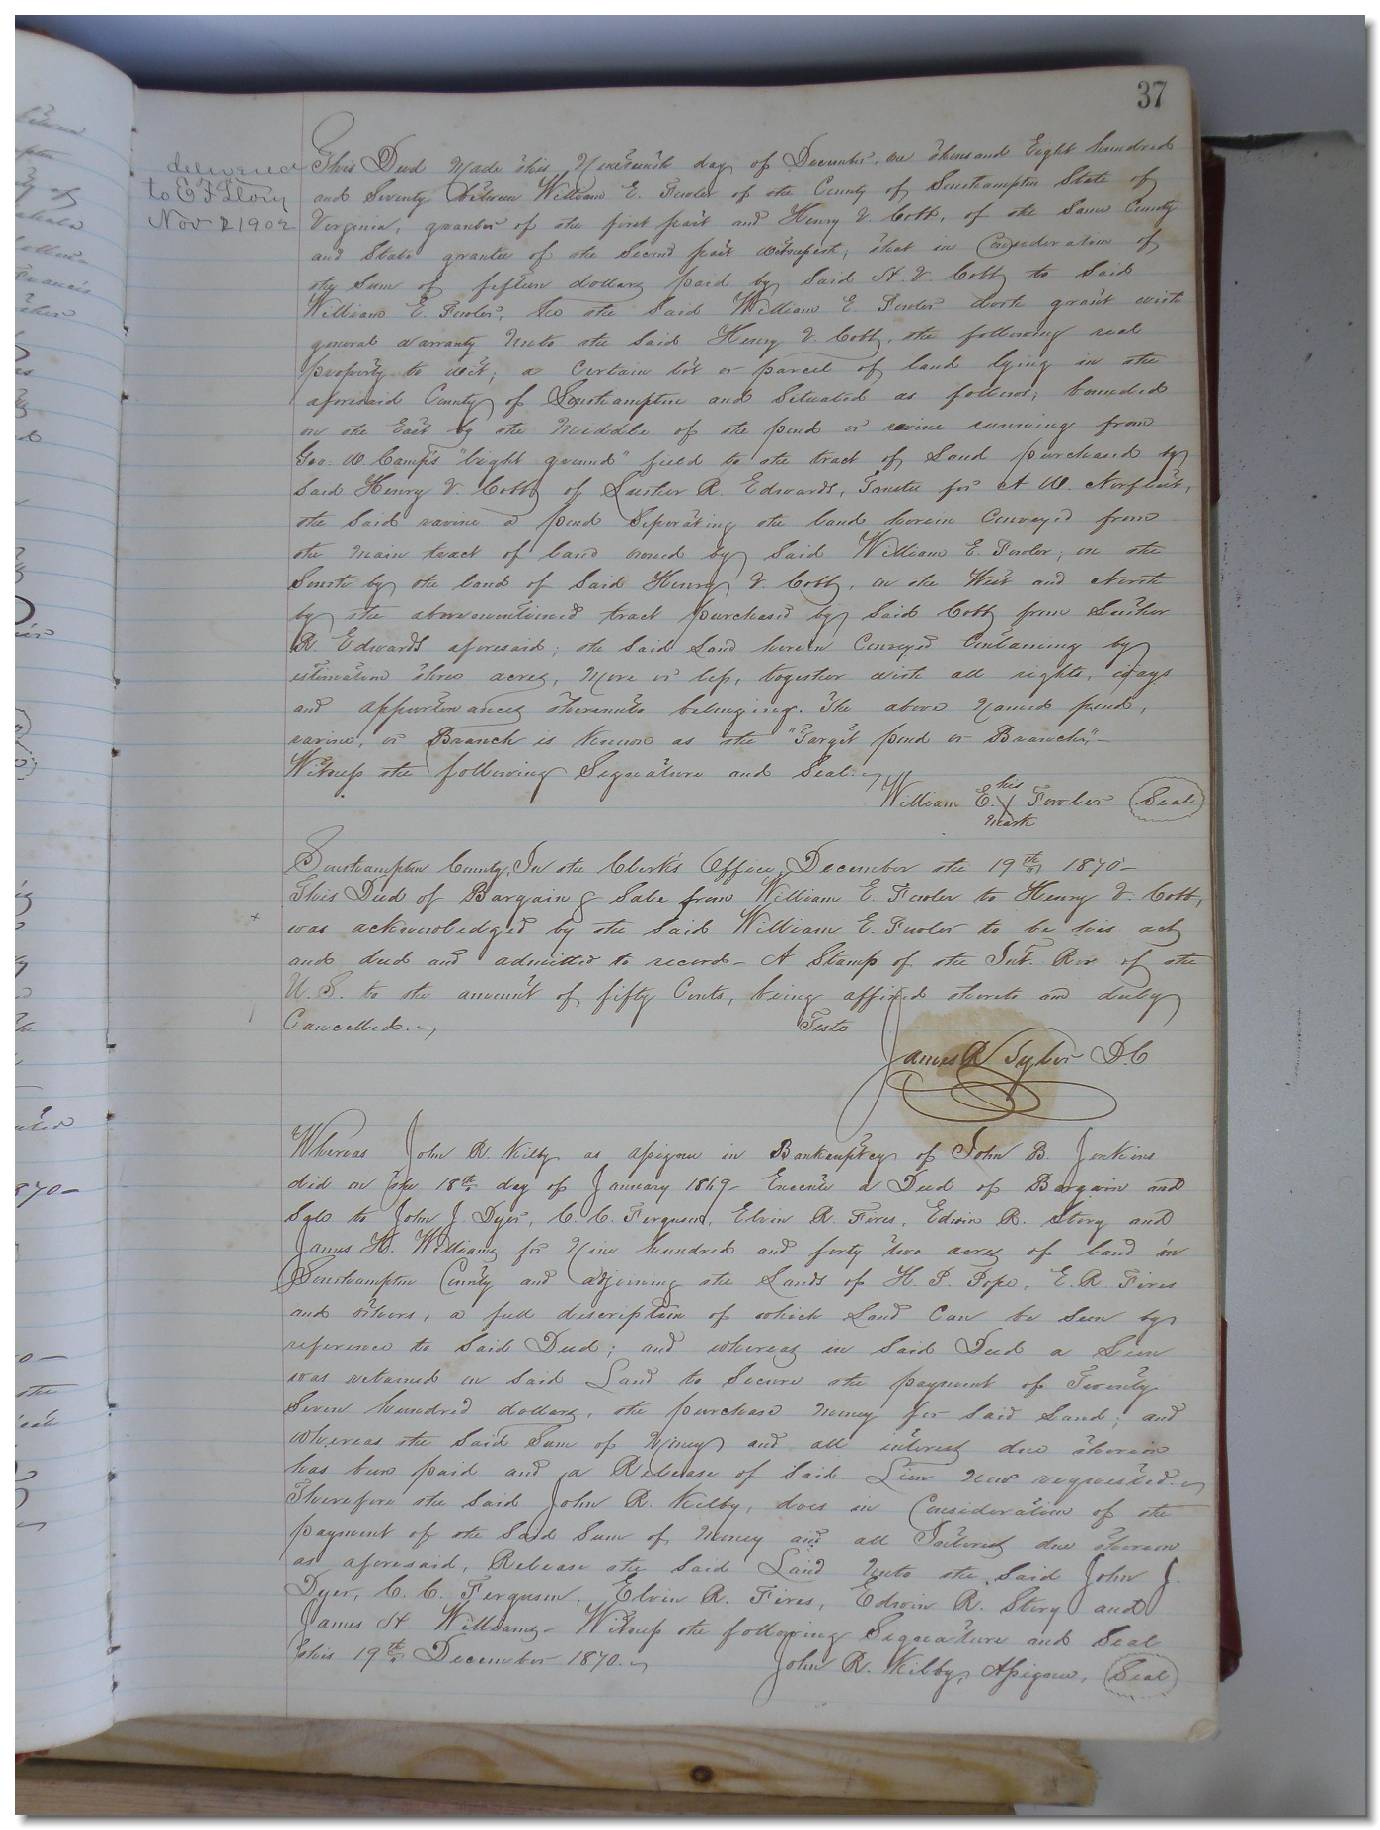 37
delivered
to E F Story
Nov 21 1902
This Deed Made this Nineteenth day of December, one thousand Eight hundred
and Seventy between William E. Fowler of the County of Southampton State of
Virginia, grantor of the first part and Henry V. Cobb, of the Same County
and State grantee of the Second part witnesseth, that in Consideration of
the Sum of fifteen dollars paid by Said H. V. Cobb to Said
William E. Fowler, he the Said William E. Fowler doth grant with
general warranty Unto the Said Henry V. Cobb, the following real
property to wit; a Certain lot or parcel of land lying in the
aforesaid County of Southampton and Situated as follows; bounded
on the East by the Middle of the pond or ravine running from
Geo. W. Camp's "light ground" field to the tract of Land purchased by
Said Henry V. Cobb of Luther R. Edwards, Trustee for A W. Norfleet,
the Said ravine or pond Seperating the land herein Conveyed from
the main tract of land owned by Said William E. Fowler; on the
South by the land of Said Henry V. Cobb, on the West and North
by the abovementioned tract purchased by Said Cobb from Luther
R. Edwards aforesaid; the Said Land herein Conveyed Containing by
estimation three acres, More or less, together with all rights, ways
and appurtenances thereunto belonging. The above Named pond,
ravine, or Branch is known as the "Target pond or Branch,"-
Witness the following Signature and Seal.
his
William E. X Fowler Seal
mark
Southampton County, In the Clerk's Office, December the 19th 1870-
This Deed of Bargain & Sale from William E. Fowler to Henry V. Cobb,
was acknowledged by the Said William E. Fowler to be his act
and deed and admitted to record- A Stamp of the Int. Rev of the
U. S. to the amount of fifty Cents, being affixed thereto and duly
Cancelled.
Teste
James R Tyler D.C
Whereas John R. Kilby as assignee in Bankruptcy of John B. Jenkins
did on the 18th day of January 1869- Execute a Deed of Bargain and
Sale to John J. Dyer, C. C. Ferguson, Elvin R. Fires, Edwin R. Story and
James H. Williams for Nine hundred and forty two acres of land in
Southampton County and adjoining the Lands of H. P. Pope, E. R. Fires
and others, a full description of which Land Can be Seen by
reference to Said Deed; and whereas in Said Deed a Lien
was retained on Said Land to Secure the payment of Twenty
Seven hundred dollars, the purchase Money for Said Land; and
whereas the Said Sum of Money and all interest due thereon
has been paid and a Release of Said Lien Now requested.
Therefore the Said John R. Kilby, does in Consideration of the
payment of the Said Sum of Money and all Interest due thereon
as aforesaid, Release the Said Land Unto the Said John J.
Dyer, C. C. Ferguson, Elvin R. Fires, Edwin R. Story and
James H Williams- Witness the following Signature and Seal
this 19th December 1870.
John R. Kilby, Assignee, Seal